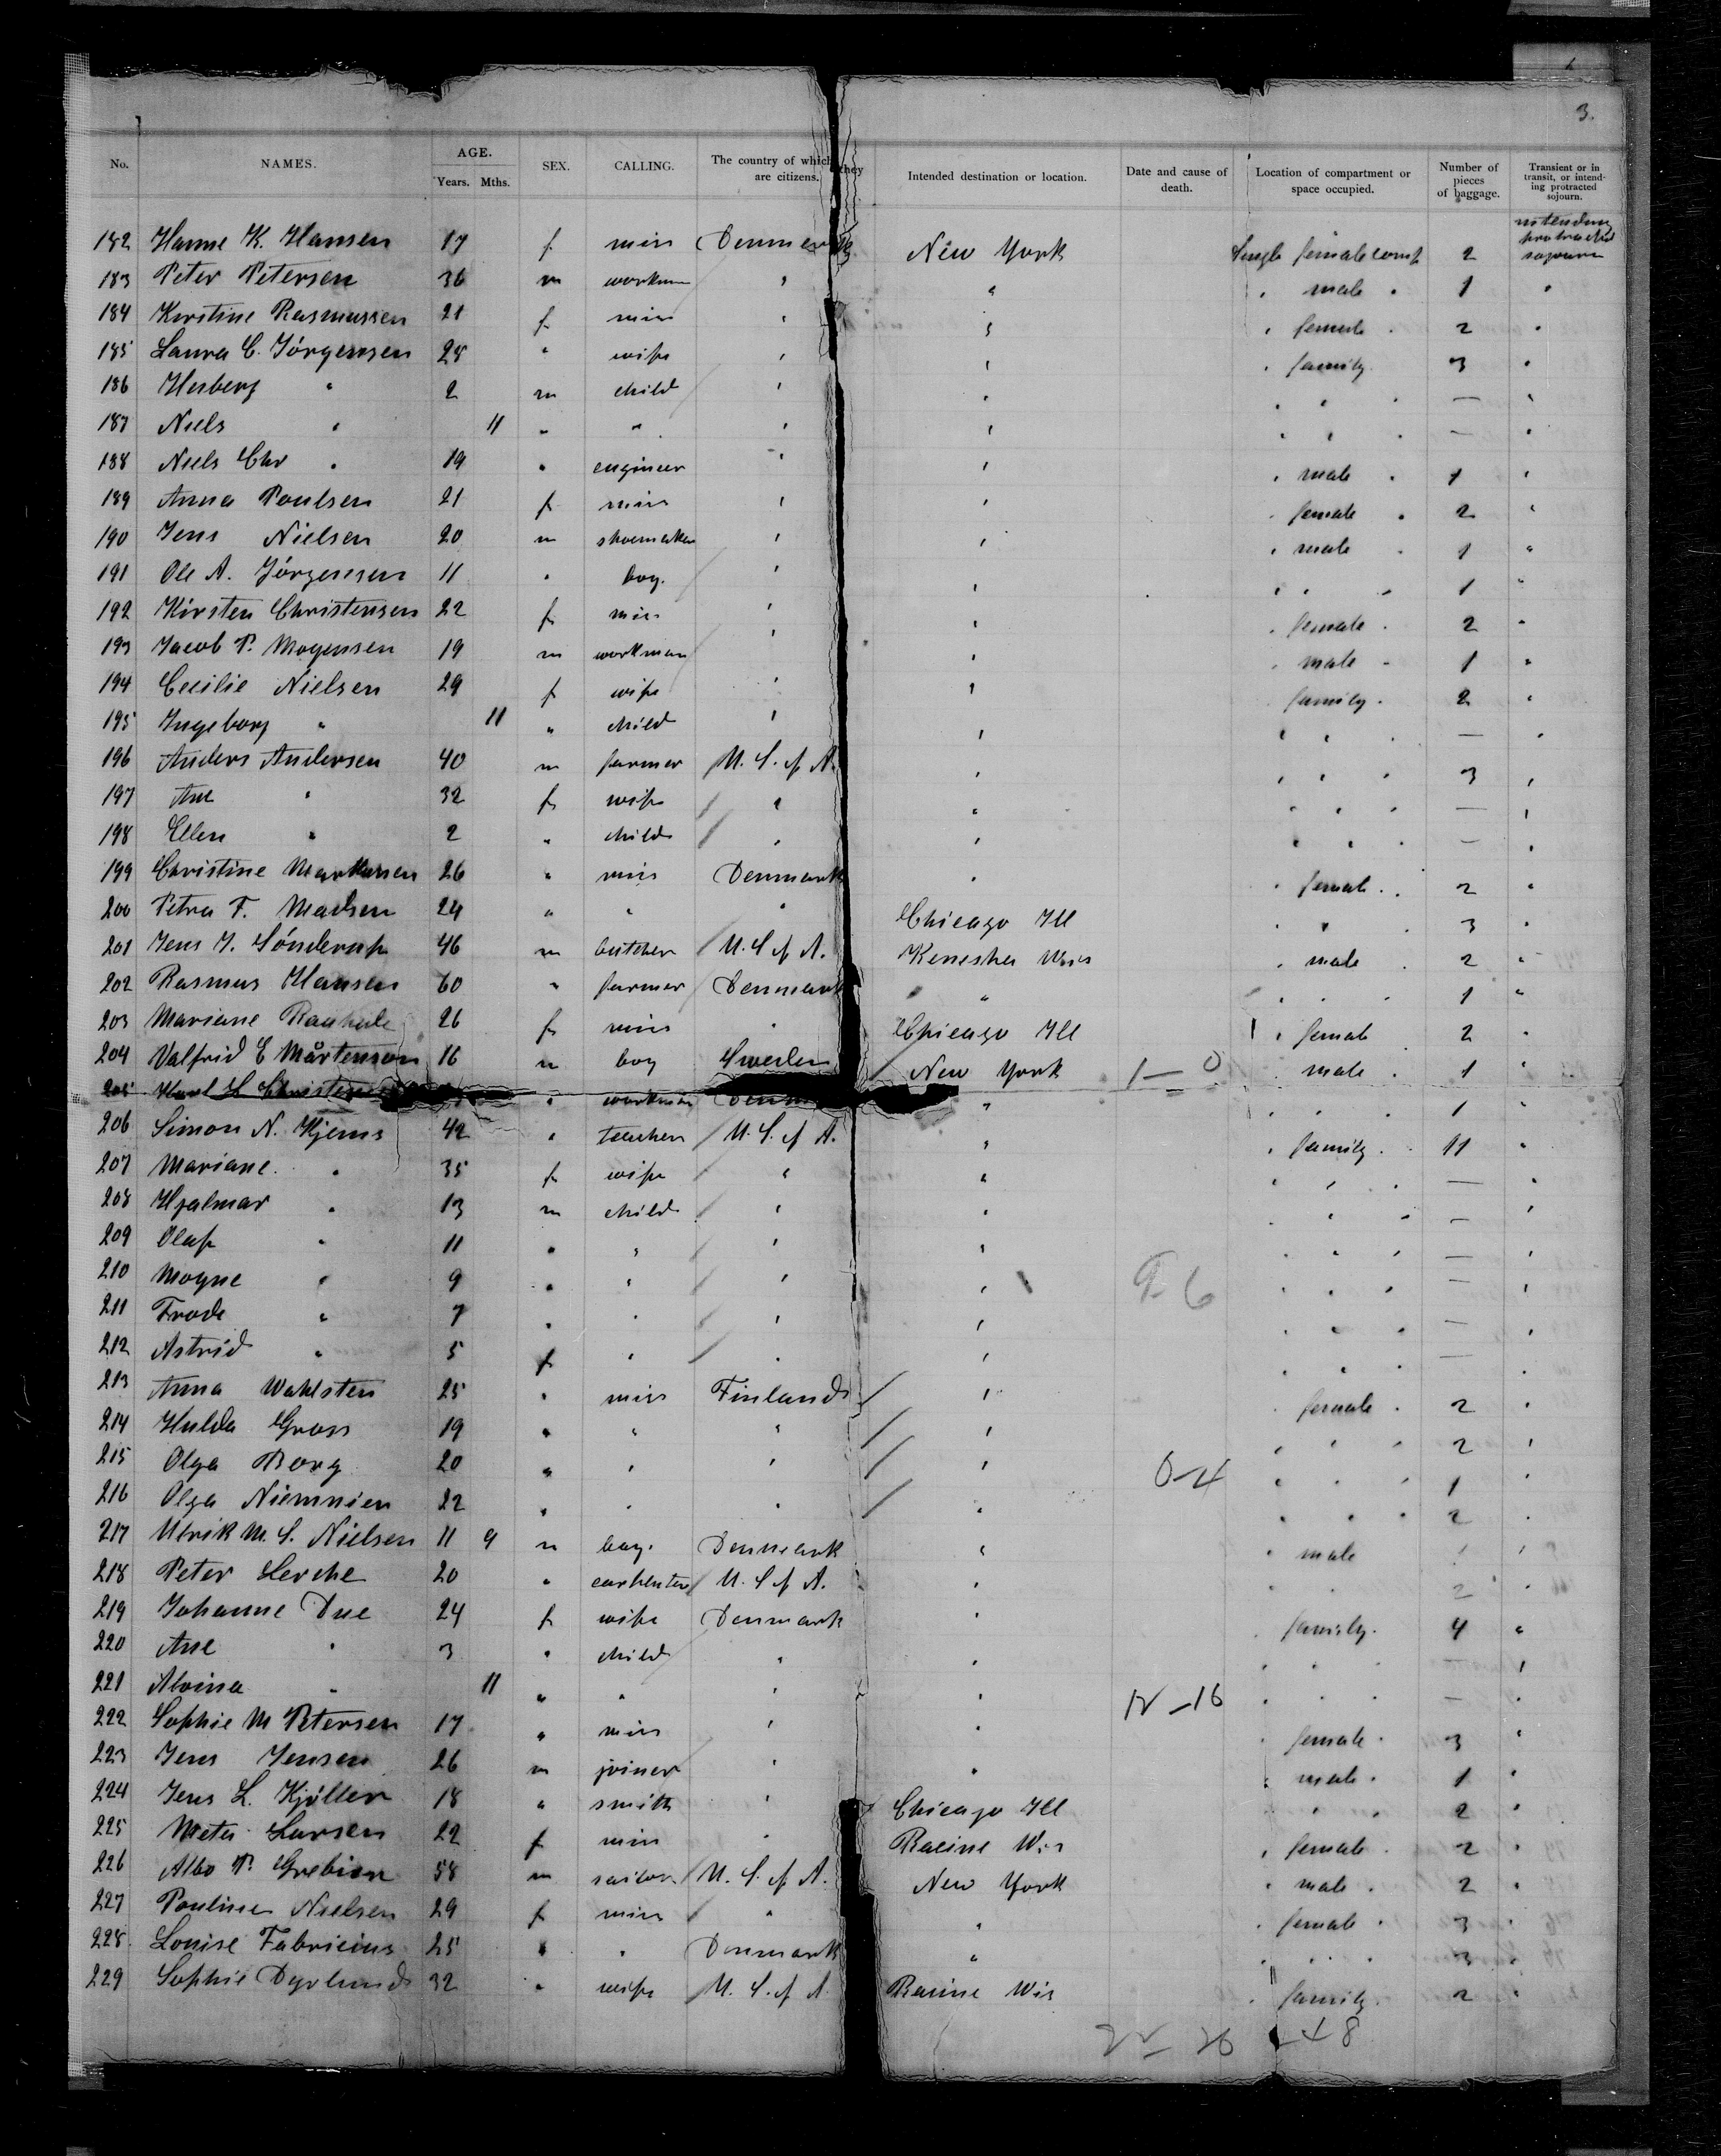 3.
No. NAMES. AGE. Years. Mths. SEX. CALLING. The country of which they are citizens. Intended destination or location. Date and cause of death. Location of compartment or space occupied. Number of pieces of baggage. Transient or in transit, or intending protracted sojourn.
182 Hanne K. Hansen 17 f miss Denmark New York Single female comp 2 intending protracted sojourn
183 Peter Petersen 36 m workman " " " male " 1 "
184 Kirstine Rasmussen 21 f miss " " " female " 2 "
185 Laura C. Jörgensen 28 " wife " " " family 3 "
186 Herberg " 2 m child " " " " " — "
187 Niels " 11 " " " " " " " — "
188 Niels Chr " 19 " engineer " " " male " 1 "
189 Anna Poulsen 21 f miss " " " female " 2 "
190 Jens Nielsen 20 m shoemaker " " " male " 1 "
191 Ole A. Jörgensen 11 " boy " " " " " 1 "
192 Kirsten Christensen 22 f miss " " " female " 2 "
193 Jacob P. Mogensen 19 m workman " " " male " 1 "
194 Cecilie Nielsen 29 f wife " " family " 2 "
195 Ingeborg " 11 " child " " " " " — "
196 Anders Andersen 40 m farmer U. S. of A. " " " " 3 "
197 Ane " 32 f wife " " " " " — "
198 Ellen " 2 " child " " " " " — "
199 Christine Markussen 26 " miss Denmark " " female " 2 "
200 Petra F. Madsen 24 " " " Chicago Ill " " " 3 "
201 Jens J. Sönderup 46 m butcher U. S. of A. Kenosha Wis " male " 2 "
202 Rasmus Hansen 60 " farmer Denmark " " " " 1 "
203 Mariane 26 f miss " Chicago Ill " female 2 "
204 Valfrid E Mårtenson 16 m boy Sweden New York 1 — 0 " male " 1 "
205 Karl H Christensen " workman Denmark " " " " 1 "
206 Simon N. Kjems 42 " teacher U. S. of A. " " family " 11 "
207 Mariane " 35 f wife " " " " " — "
208 Hjalmar " 13 m child " " " " " — "
209 Olaf " 11 " " " " " " " — "
210 Mogne " 9 " " " " 6 " " " — "
211 Frode " 7 " " " " " " " — "
212 Astrid " 5 f " " " " " " — "
213 Anna Wahlsten 25 " miss Finland " " female " 2 "
214 Hulda Gross 19 " " " " " " " 2 "
215 Olga Borg 20 " " " " 0-4 " " " 1 "
216 Olga Niemnien 22 " " " " " " " 2 "
217 Ulrik M. S. Nielsen 11 9 m boy. Denmark " " male 1 "
218 Peter Lerche 20 " carpenter U. S. of A. " " " 2 "
219 Johanne Due 24 f wife Denmark " " family. 4 "
220 Ane " 3 " child " " " " " — "
221 Alvina " 11 " " " " 12 - 16 " " " — "
222 Sophie M Petersen 17 " miss " " " female " 3 "
223 Jens Jensen 26 m joiner " " " male " 1 "
224 Jens L. Kjöller 18 " smith " Chicago Ill " " 2 "
225 Meta Larsen 22 f miss " Racine Wis " female " 2 "
226 Albo P. Grebien 58 m sailor U. S. of A. New York " male " 2 "
227 Pouline Nielsen 29 f miss " " " female " 3 "
228. Louise Fabricius 25 " " Denmark " " " " 3 "
229 Sophie Dyrlund 32 " wife U. S. of A. Racine Wis " family " 2 "
26 48